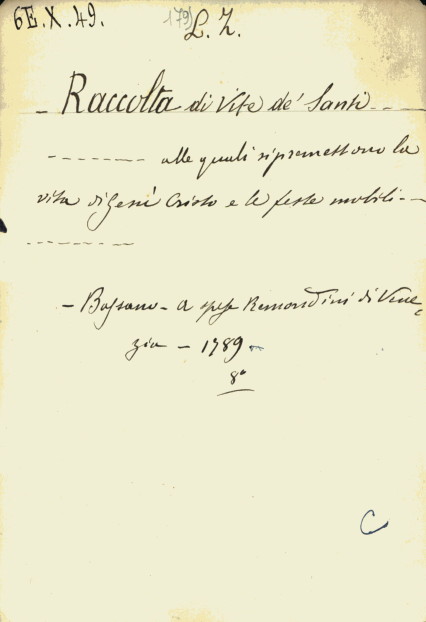 6E.X.49. 179) L. Z.
_ Raccolta di Vite de' Santi _ _ _
_ _ _ _ _ _ _ alle quali si premettono la
vita di Gesù Cristo e le feste mobili _ _
_ _ _ _ _ _ _ _
– Bassano – a spese Remondini di Vene=
zia – 1789 –
8°
C